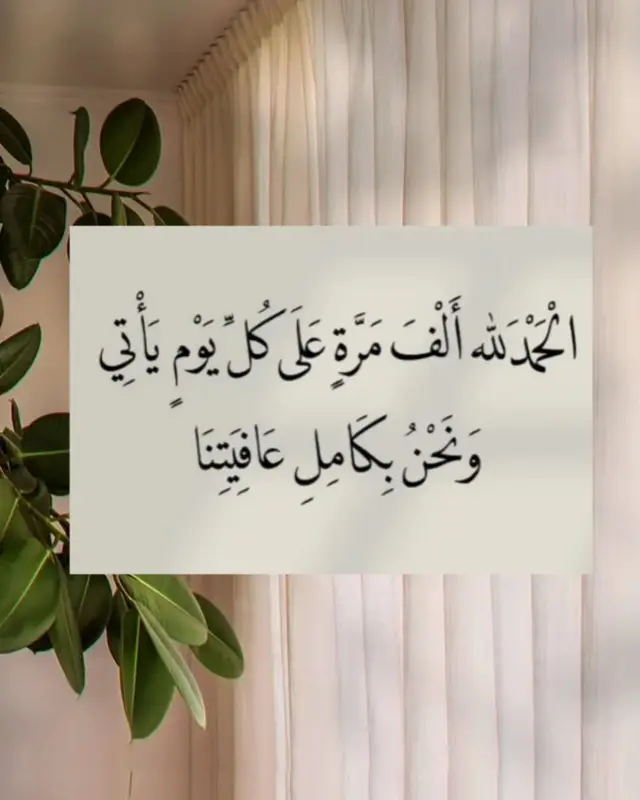 الْحَمْدَلله أَلْفَ مَرَّةٍ عَلَى كُلِّ يَوْمٍ يَأْتِي
وَنَحْنُ بِكَامِلِ عَافِيَتِنَا